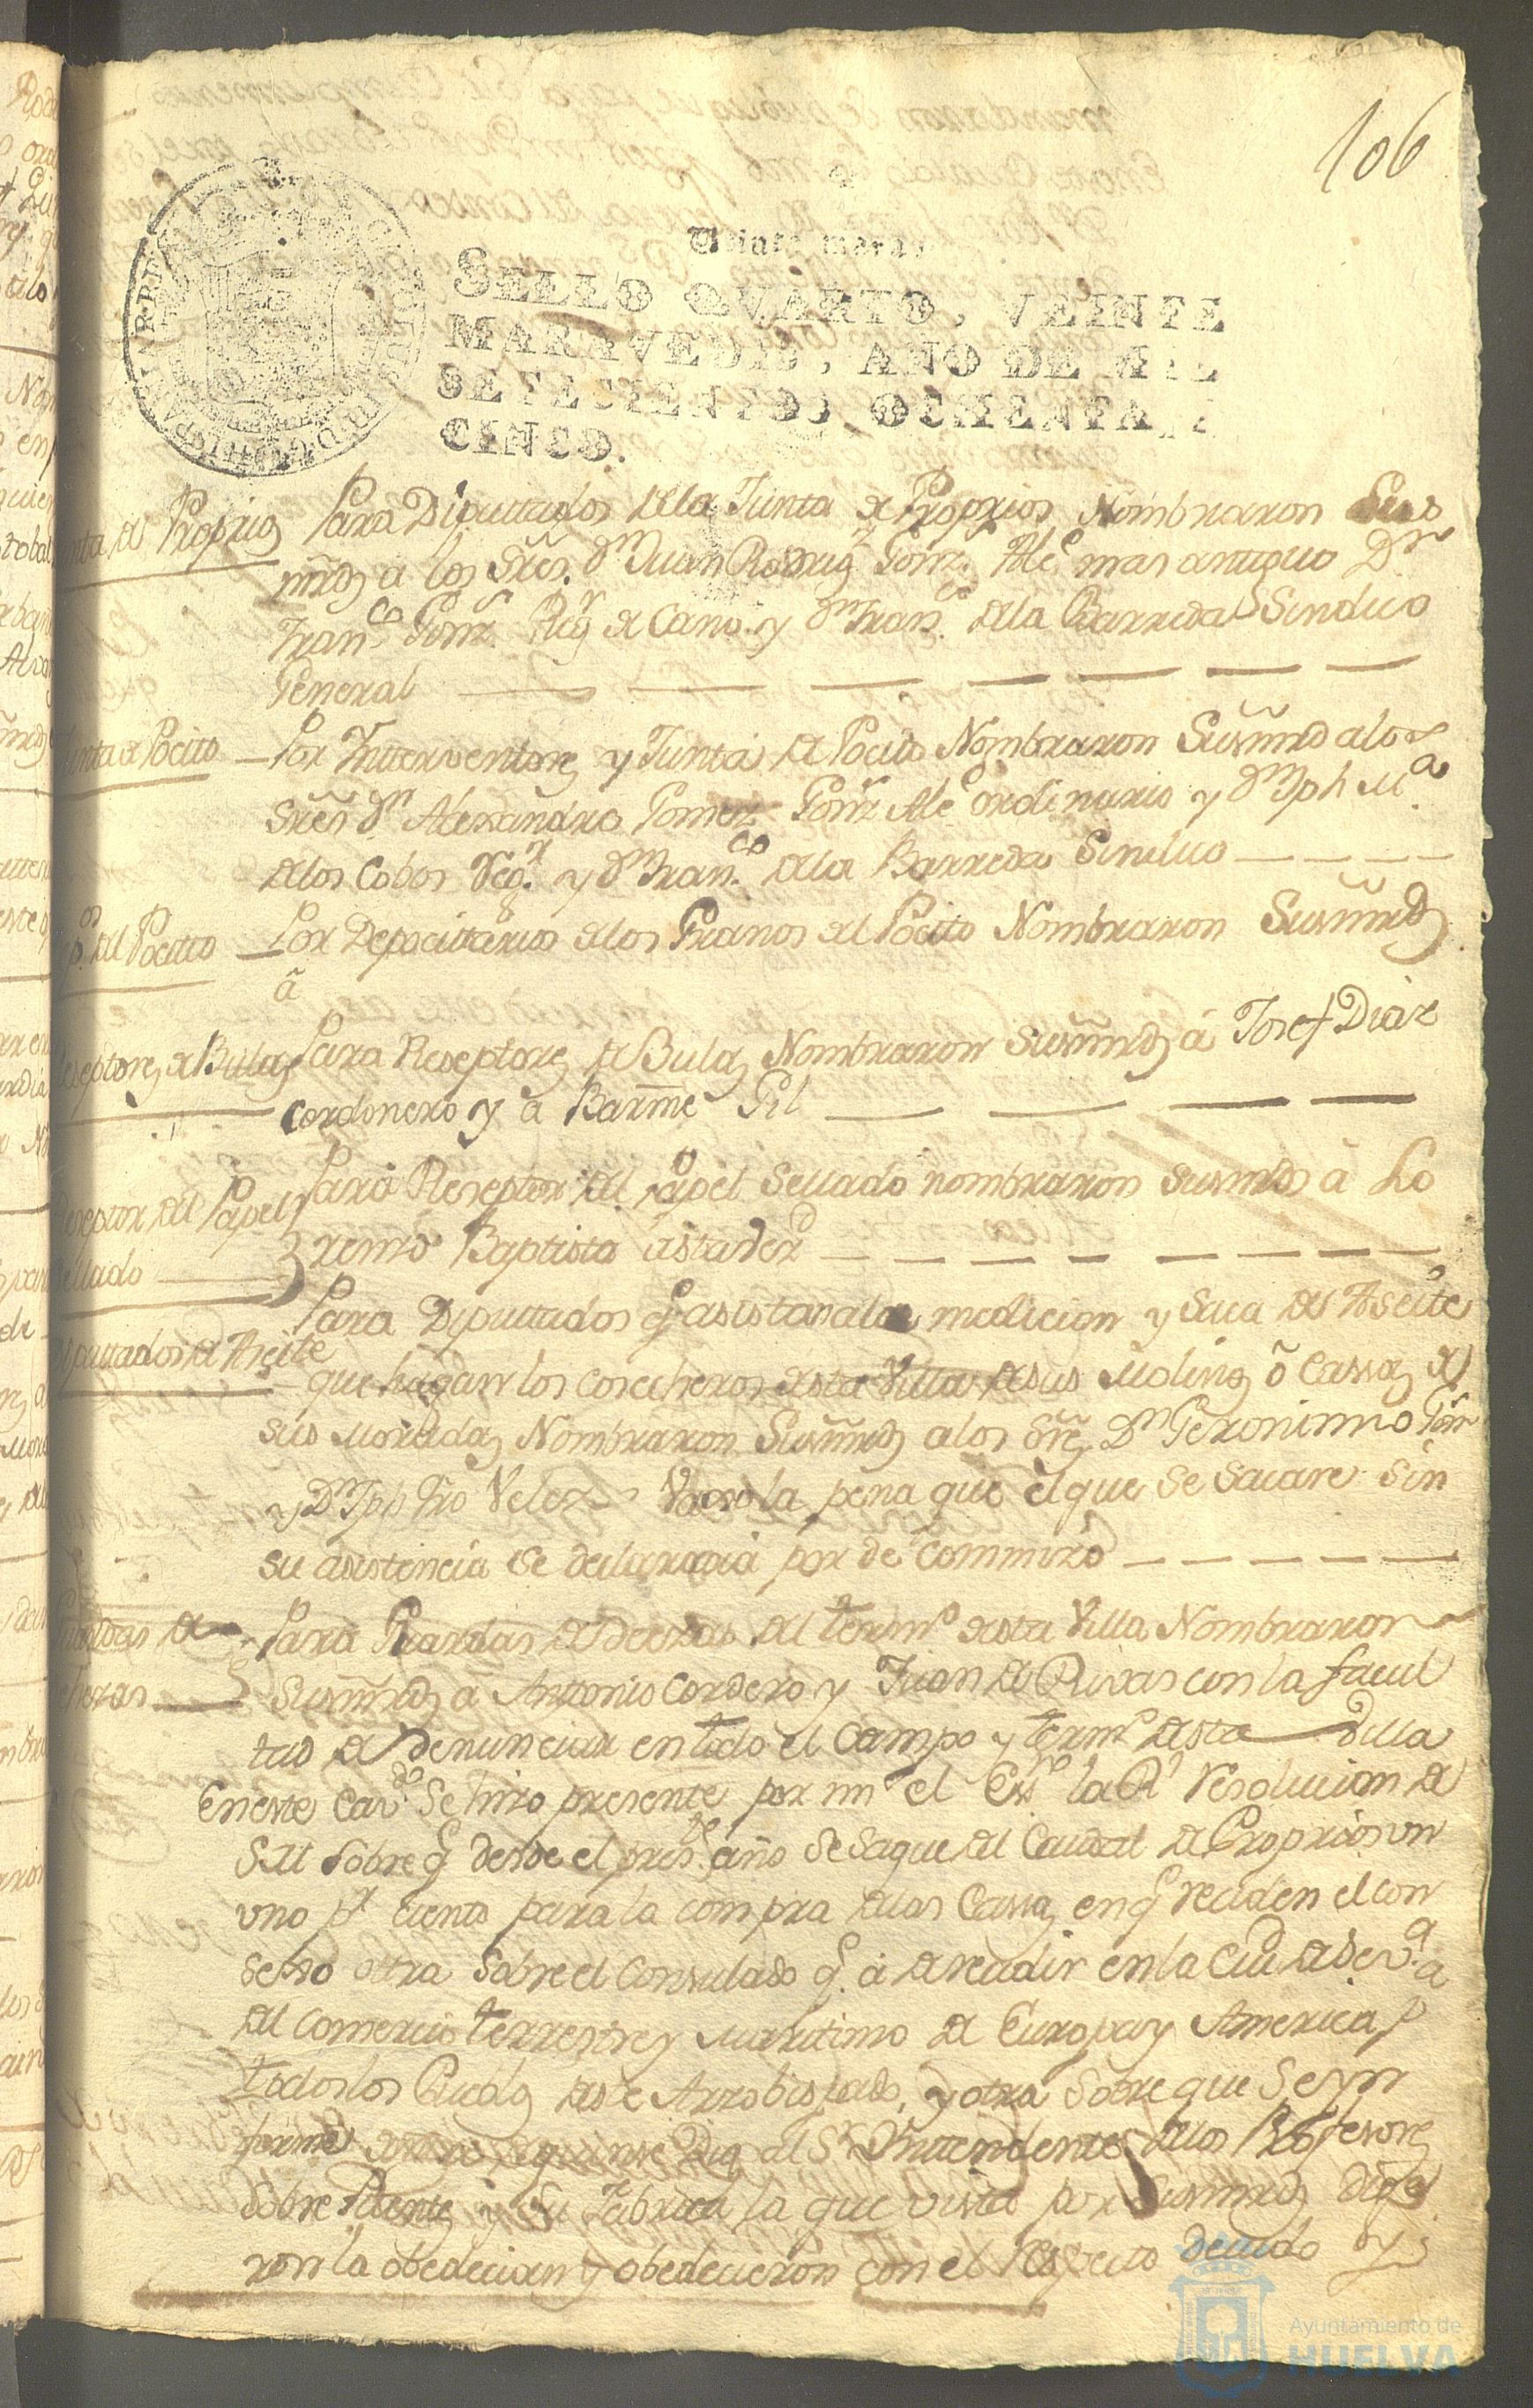 106
Veinte marav
SELLO QVARTO, VEINTE
MARAVEDIS, AÑO DE MIL
SETECIENTOS OCHENTA Y
CINCO.
nta de Proprios
Para Diputtados dela Junta de Proprios Nombraron Sus
mrds a los Sres. Dn Juan Rodrigz Gonz. Alce mas antiguo Dn
Franco Gonz. Regr de Cano y Dn Franco dela Barreda Sindico
General
unta de Pocito
Por Ynterventores y Junta de Pocito Nombraron Susmrd alos
Sres Dn Alexandro Gomez Gonz Alce ordinario y Dn Jph Ma
delos Cobos Regr y Dn Franco dela Barreda Sindico
po del Pocitto
Por Depocitario delos Granos del Pocito Nombraron Susmrds
à
eseptores de Bulas
Para Reseptores de Bulas Nombraron Susmrds á Josef Diaz
Cordonero y a Barme Gil
eseptor del Papel
ellado
Para Reseptor del Papel Sellado nombraron Susmrds à Lo
renzo Baptista
putados de Aceite
Para Diputtados q asistan ala medicion y Saca de Aseite
que hagan los Cosecheros desta Villa de sus Molinos ô Casas de
sus Moradas Nombraron Susmrds alos Sres Dn Geronimo Gonz
y Dn Jph Velez Vaxo la pena que el que se Sacare sin
su asistencia se declarara por de Commizo
Guardas de
hezas
Para Guardas de Dehezas del termo desta Villa Nombraron
Susmrds a Antonio Cordero y Juan de Rivas con la facul
tad de denunciar en todo el Campo y termo desta Villa
En este Cavdo Se hizo presente por mi el Essno la Rl Resolucion de
S.M sobre q desde el preste año Se saque del Caudal de Proprios un
uno pr ciento para la compra delas Casas en q reciden el con
sexo otra Sobre el Consulado q. á de recidir en la Ciud de Seva
del Comercio terrestre y Maritimo de Europa y America, p
todos los Pueblos deste Arzobispado, y otra Sobre que Se yn
forme dentro de quinse Dias al Sr Yntendente delos Profesores
Sobre y Su Fabrica la que vista por Susmrds dige
ron la obedecian y obedecieron con el respecto devido y
Ayuntamiento de
HUELVA